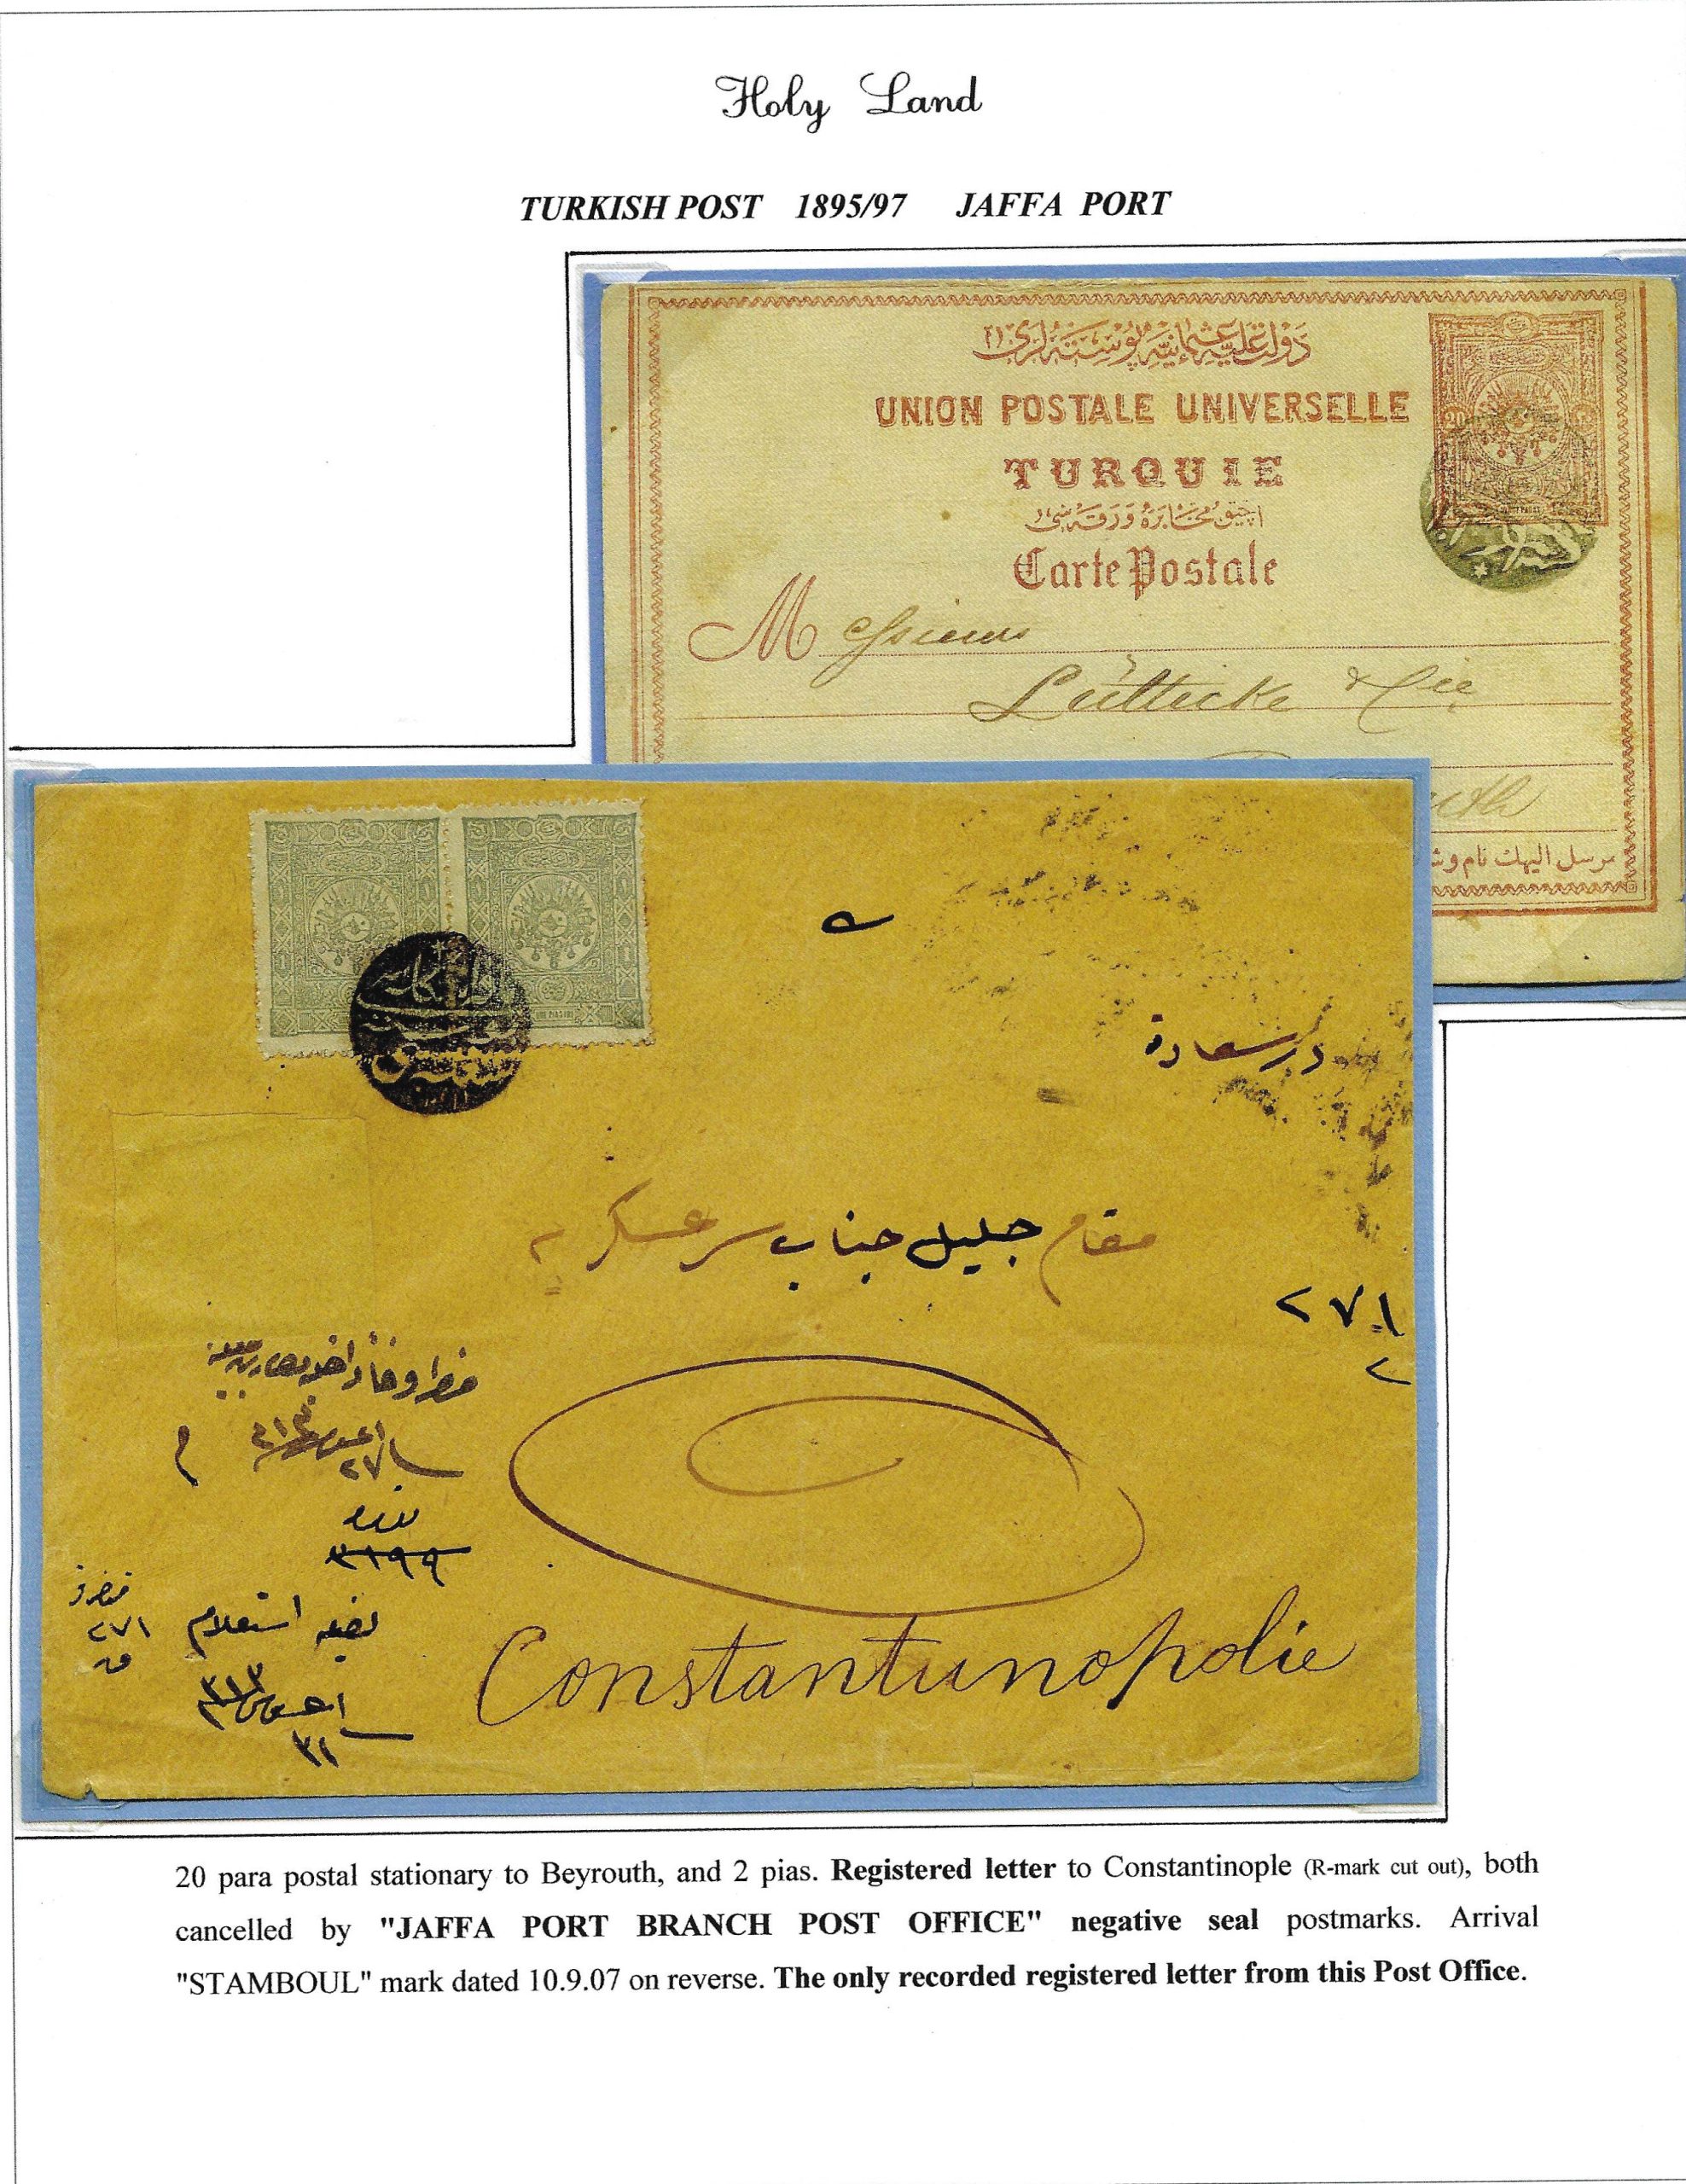 Holy Land
TURKISH POST 1895/97 JAFFA PORT
دولت عليه عثمانيه پوسته لرى
UNION POSTALE UNIVERSELLE
TURQUIE
20
آچيق مخابره ورقه سى
Carte Postale
Messieurs
Lütticke & Cie
uth
مرسل اليهك نام وش
1 1 1
UNE PIASTRE
در سعادة
مقام جليل جناب سر عسكري
٢٧١
٢٧
نمرو
٣١٩٩
٢٧١
استعلام
٣١٣
٣١
Constantunopolie
20 para postal stationary to Beyrouth, and 2 pias. Registered letter to Constantinople (R-mark cut out), both
cancelled by "JAFFA PORT BRANCH POST OFFICE" negative seal postmarks. Arrival
"STAMBOUL" mark dated 10.9.07 on reverse. The only recorded registered letter from this Post Office.